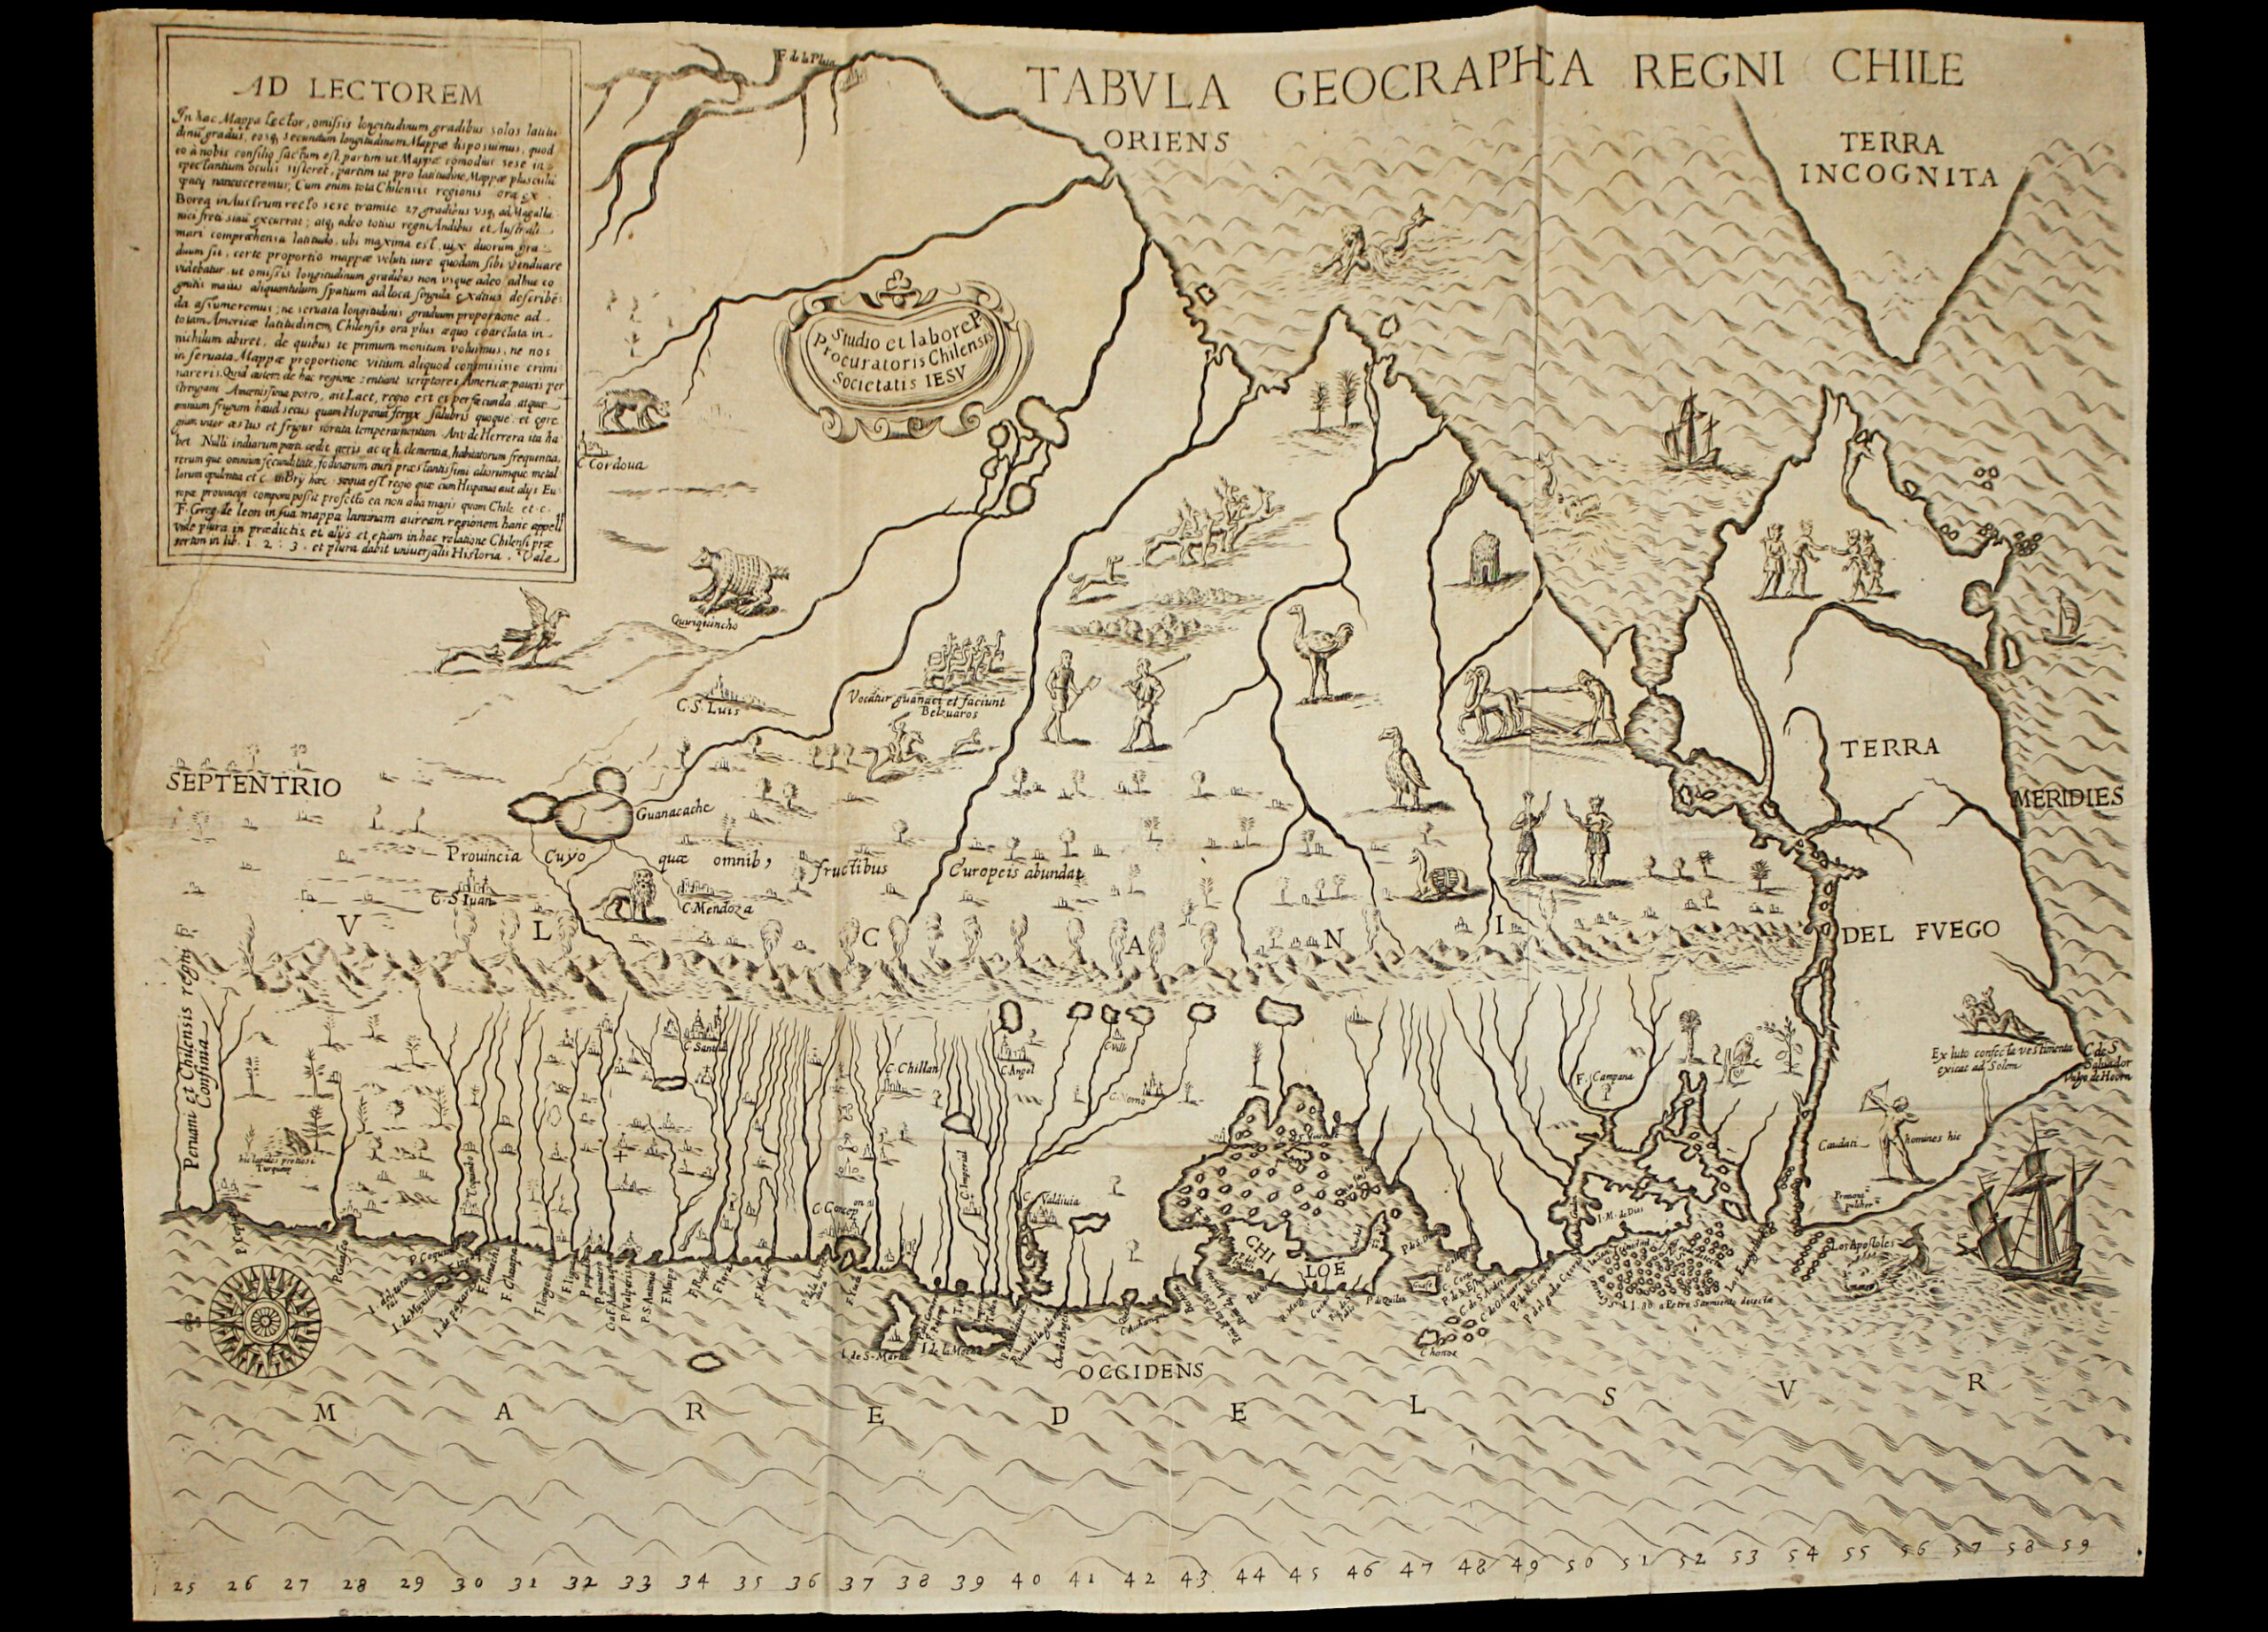 AD LECTOREM
In hac Mappa Lector, omissis longitudinum gradibus solos latitu-
dinũ gradus, eosq, secundum longitudinem Mappæ disposuimus, quod
eo à nobis consilio factum est, partim ut Mappa comodius sese in-
spectantium oculis sisteret, partim ut pro latitudine Mappæ plusculũ
spacij nancisceremur; Cum enim tota Chilensis regionis ora ex
Borea in Austrum recto sese tramite 27 gradibus usq, ad Magalla-
nici freti sinũ excurrat; atq, adeo totius regni Andibus et Australi
mari compræhensa latitudo, ubi maxima est, vix duorum gra-
duum sit, certe proportio mappæ veluti iure quodam sibi vendicare
videbatur, ut omissis longitudinum gradibus non usque adeo adhuc co
gnitis maius aliquantulum spatium ad loca singula exactius describẽ-
da assumeremus; ne servata longitudinis graduum proportione ad
totam Americæ latitudinem, Chilensis ora plus æquo coarctata in
nichilum abiret, de quibus te primum monitum voluimus, ne nos
in servata Mappæ proportione vitium aliquod commisisse crimi-
nareris. Quid autem de hac regione sentiant scriptores Americæ, paucis per
stringam. Amænissima porro, ait Laet, regio est et perfæcunda atque
omnium frugum haud secus quam Hispania ferax salubris quoque et egre
giam inter æstus et frigus sortita temperamentum Ant. de Herrera ita ha
bet Nulli indiarum parti cedit aeris ac cęli clementia, habitatorum frequentia,
rerumque omnium fęcunditate, fodinarum auri præstantissimi aliorumque metal
lorum opulentia et c. in Bry hæc sequa est regio quæ cum Hispania aut alijs Eu-
ropæ provincijs componi possit profecto ea non alia magis quam Chile et c.
F. Greg. de leon in sua mappa laminam auream regionem hanc appell
vide plura in prædictis et alijs et etiam in hac relatione Chilensi præ
sertim in lib. 1. 2. 3. et plura dabit universalis Historia. Vale
F. de la Plata
TABVLA GEOCRAPHCA REGNI CHILE
ORIENS
TERRA
INCOGNITA
Studio et labore P.
Procuratoris Chilensis
Societatis IESV
C Cordoua
Quiriquincho
C. S. Luis
Vocatur guanaci et faciunt
Belzuaros
SEPTENTRIO
Guanacache
TERRA
MERIDIES
Prouincia Cuyo quæ omnib, fructibus Europeis abundat
C. S Iuan
C. Mendoza
V L C A N I
DEL FVEGO
Peruani et Chilensis regni
Confinia
C. Santia
C. Chillan
C. Angol
C. Vill
F. Campana
Ex luto confecta vestimenta
exicat ad Solem
C de S
Saluador
Vulgo de Hoorn
Caudati homines hic
hic lapides pretiosi
Turquinę
F. Coquimbo
C. Imperial
Valdiuia
C. Osorno
C. Concep
on
CHI
LOE
I. M. de Dios
Los Apostoles
P. Guasco
F. Limari
F. Chuapa
F. Longotoma
F. ligua
P. Valparis
P. S. Antonio
F. Maypo
F. Rapel
F. Maule
I. de S. Maria
I. de la Mocha
P. de Quilan
P. del gada
Chonos
a Petro Sarmiento detectæ
OCCIDENS
M A R E D E L S V R
25 26 27 28 29 30 31 32 33 34 35 36 37 38 39 40 41 42 43 44 45 46 47 48 49 50 51 52 53 54 55 56 57 58 59